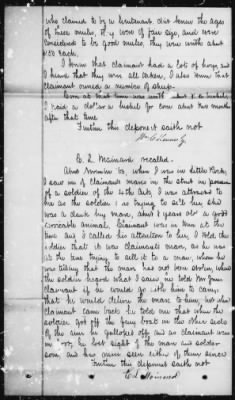 who claimed to be a lieutenant also knew the ages
of these mules, they were of fair size, and were
considered to be good mules, they were worth about
150 each.
I know that claimant had a lot of hogs, and
I heard that they were all taken, I also know that
claimant owned a number of sheep.
Corn at that time was worth
I paid a dollar a bushel for corn about two months
after that time
Further this deponent saith not
E. L. Mainard recalled.
About November 63, when I was in Little Rock,
I saw one of claimants mares in the street in possession
of a soldier of the 4th Ark, I was attracted to
her as the soldier was trying to sell her, she
was a dark bay mare, about 8 years old a good
serviceable animal, Claimant was in town at the
time and I called his attention to her, I told the
soldier that it was claimants mare, as he was
at the time trying to sell it to a man, when he
was telling that the mare had not been stolen, when
the soldier heard what I said he told
claimant if he would go with him to camp,
that he would deliver the mare to him, but when
claimant came back he told me that when the
soldier got off the ferry boat on the other side
of the river he galloped off and as claimant was
on foot, he lost sight of the mare and soldier
soon, and has never seen either of them since
Further this deponent saith not
E L Mainard